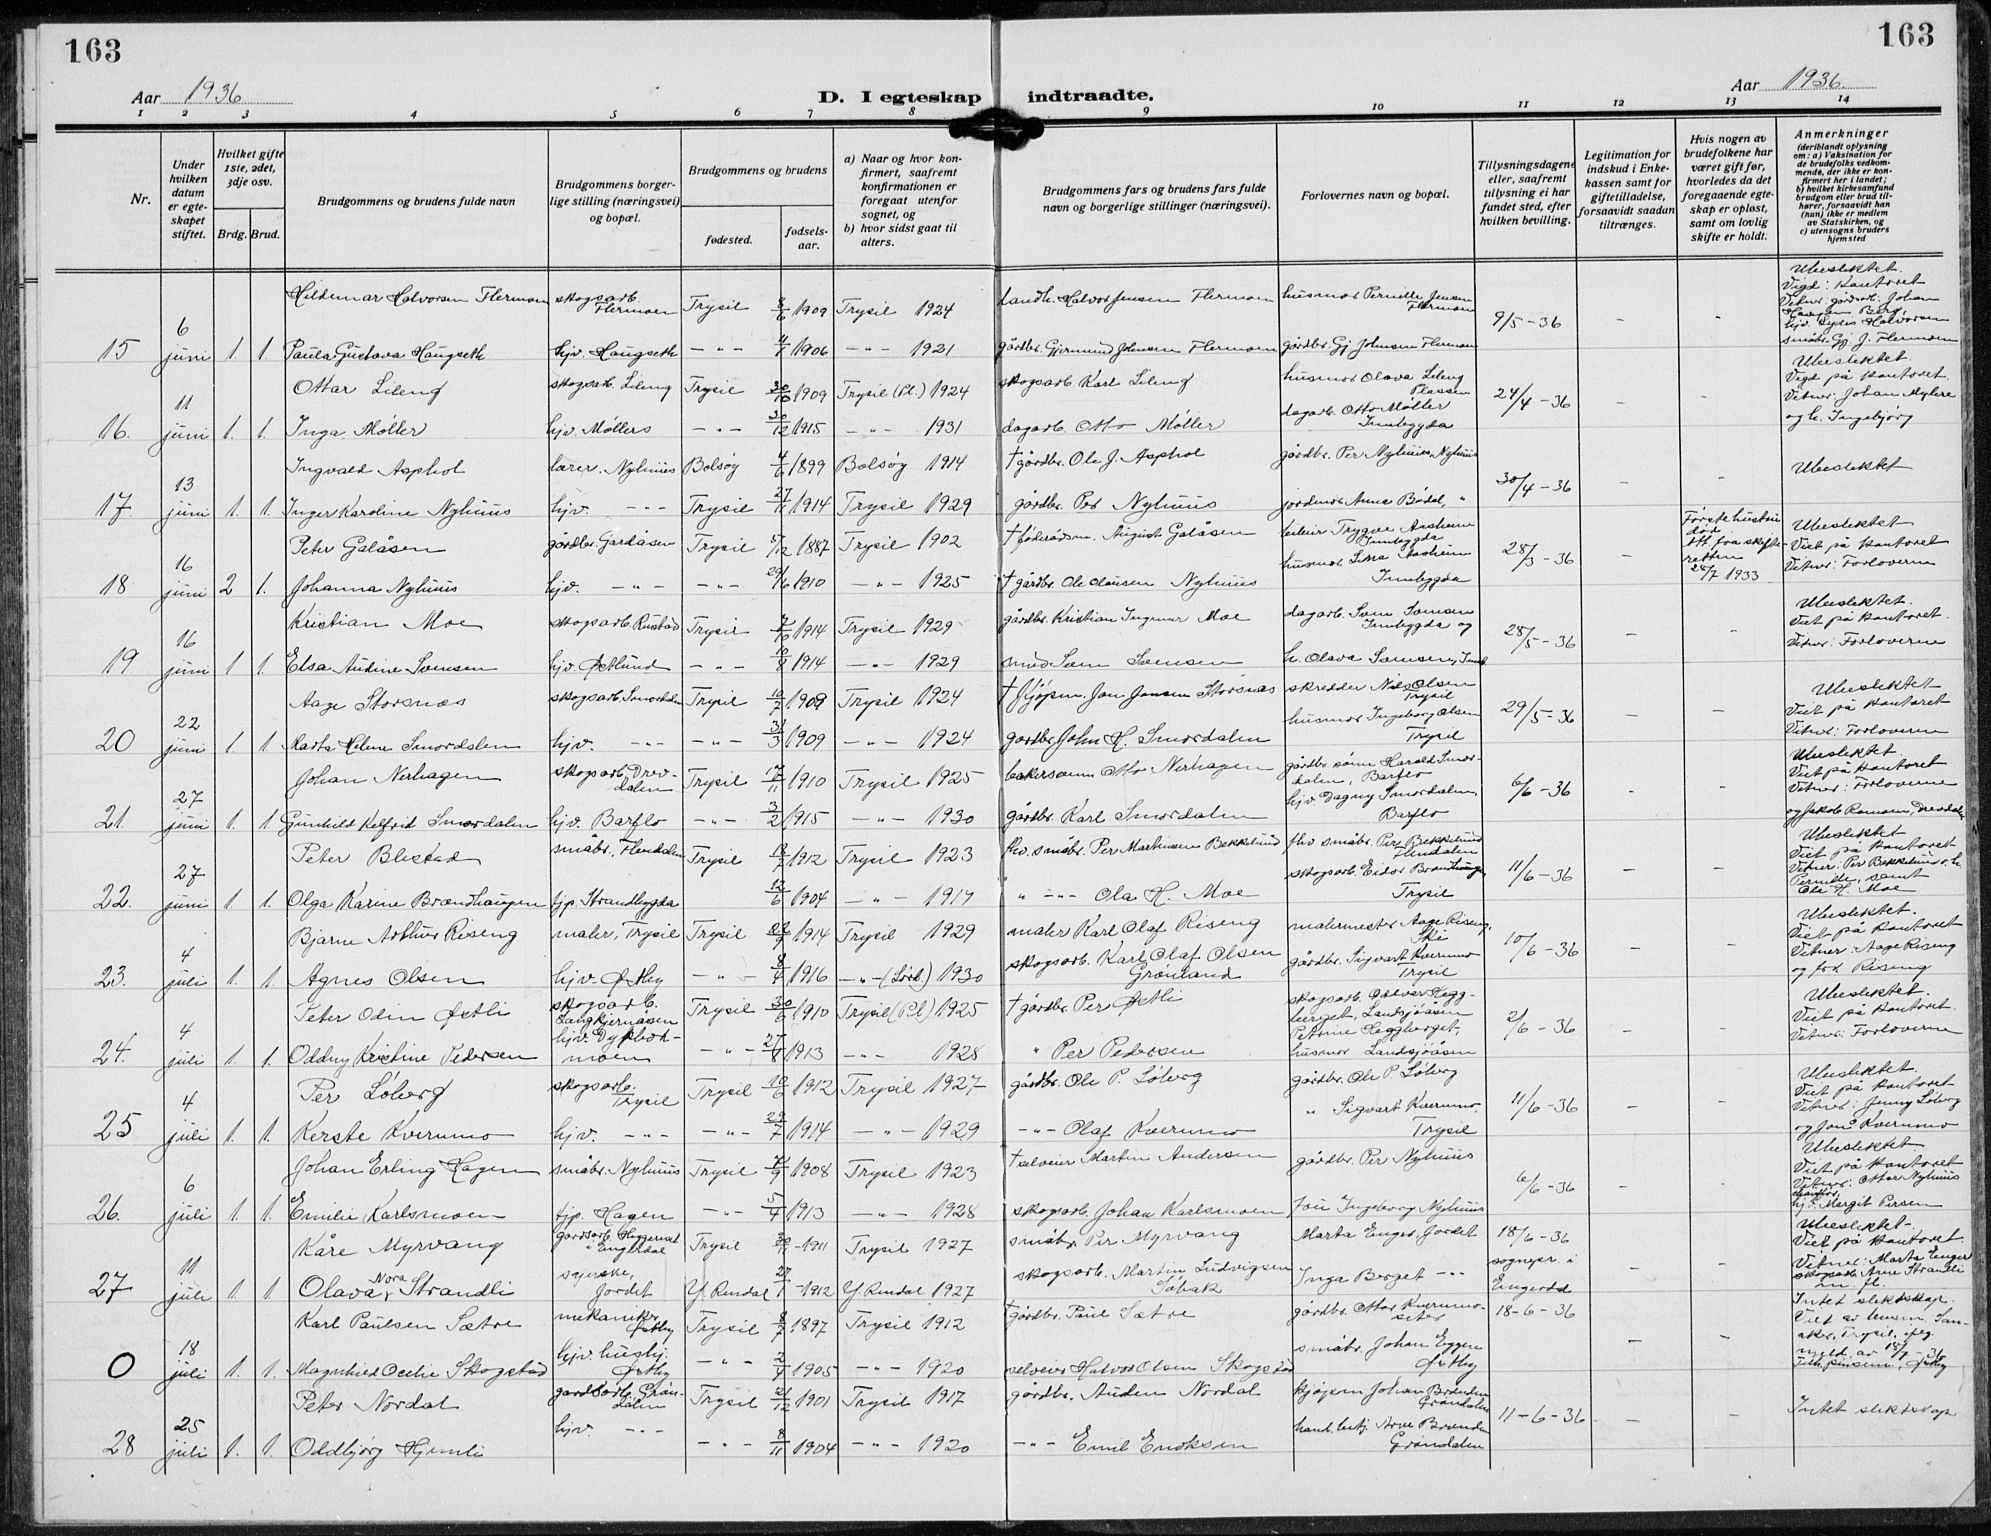 163
163
Aar 1936
D. I egteskap indtraadte.
Aar 1936.
1 2 3 4 5 6 7 8 9 10 11 12 13 14
Nr.
Under hvilken datum er egteskapet stiftet.
Hvilket gifte 1ste, 2det, 3dje osv.
Brdg. Brud.
Brudgommens og brudens fulde navn
Brudgommens borgerlige stilling (næringsvei) og bopæl.
Brudgommens og brudens
fødested.
fødselsaar.
a) Naar og hvor konfirmert, saafremt konfirmationen er foregaat utenfor sognet, og
b) hvor sidst gaat til alters.
Brudgommens fars og brudens fars fulde navn og borgerlige stillinger (næringsvei).
Forlovernes navn og bopæl.
Tillysningsdagene eller, saafremt tillysning ei har fundet sted, efter hvilken bevilling.
Legitimation for indskud i Enkekassen samt for giftetilladelse, forsaavidt saadan tiltrænges.
Hvis nogen av brudefolkene har været gift før, hvorledes da det foregaaende egteskap er opløst, samt om lovlig skifte er holdt.
Anmerkninger
(deriblandt oplysning om: a) Vaksination for de brudefolks vedkommende, der ikke er konfirmert her i landet; b) hvilket kirkesamfund brudgom eller brud tilhører, forsaavidt han (hun) ikke er medlem av Statskirken, og c) utensogns bruders hjemsted
Hildemar Halvorsen Flermoen skogsarb. Flermoen Trysil 8/6 1909 Trysil 1924 landh. Halvor Jensen Flermoen husmor Pernille Jensen Flermoen 9/5-36 - - Ubeslektet. Vigd: Kontoret
15 6 juni 1. 1. Paula Gustava Haugseth hjv. Haugseth -"- 4/7 1906 -"- 1921 gårdbr. Gjermund Johnsen Flermoen gårdbr. Gj. Johnsen Flermoen
Ottar Lileng skogsarb. Lileng Trysil 1909 Trysil (Pl.) 1924 skogsarb. Karl Lileng husmor Olava Lileng Plassen 24/4-36 - Ubeslektet. Vigd på kontoret
16. 11 juni 1. 1. Inga Møller hjv. Møllers -"- 30/12 1915 -"- 1931 dagarb. Otto Møller dagarb. Otto Møller Innbygda og h. Ingebjørg
Ingvald Asphol lærer. Nyhuus Bolsøy 4/6 1899 Bolsøy 1914 † gårdbr. Ole J. Asphol gårdbr. Per Nyhuus, Nyhuus 30/4-36 - - Ubeslektet
17. 13 juni 1. 1. Inger Karoline Nyhuus hjv. -"- Trysil 1914 Trysil 1929 gårdbr. Per Nyhuus jordmor Anna Bødal, "
Peter Galåsen gårdbr. Gardåsen Trysil 5/12 1887 Trysil 1902 † føderådsm. August Galåsen Trygve Aasheim Innbygda 28/3-36 - Første hustru død. Ubeslektet Viet på kontoret
18 16 juni 2 1. Johanna Nyhuus hjv. -"- -"- 29/6 1910 -"- 1925 † gårdbr. Ole Olausen Nyhuus husmor Aasheim Innbygda 28/7 1933 Vitner: Forloverne
Kristian Moe skogsarb. Rustad Trysil 1914 Trysil 1929 gårdbr. Kristian Ingemar Moe dagarb. Innbygda og 28/5-36 - - Ubeslektet. Viet på kontoret.
19 16 juni 1 1. Elsa Andine Svensen hjv. Østlund -"- 1914 -"- 1929 h. Olava Vitner: Forloverne
Aage Storsnæs skogsarb. Smordalen Trysil 10/7 1909 Trysil 1924 † Jensen Storsnæs skredder Nils Olsen Trysil 29/5-36 - - Ubeslektet Viet på kontoret
20 22 juni 1 1. Marta Helene Smordalen hjv. -"- -"- 31/3 1909 -"- 1924 gårdbr. John H. Smordalen husmor Ingeborg Olsen Trysil Vitner: Forloverne
Johan Nerhagen skogsarb. Drevdalen Trysil 17/11 1910 Trysil 1925 Otto Nerhagen gårdbr. sønn Harald Smordalen, Barflo 6/6-36 - - Ubeslektet. Viet på kontoret Vitner: Forloverne
21. 27 juni 1. 1. Gunhild Kelfrid Smordalen hjv. Barflo -"- 3/2 1915 -"- 1930 gårdbr. Karl Smordalen hjv. Dagny Smordalen, Barflo
Peter Blestad småbr. Flendalen Trysil 18/7 1912 Trysil 1923 fhv. småbr. Per Martinsen Bekkelund fhv. småbr. Per Bekkelund Flendalen 11/6-36 - - Ubeslektet Viet på kontoret
22. 27 juni 1. 1. Olga Karine Brændhaugen hjp. Strandbygda 12/6 1904 -"- 1919 " -"- Ola H. Moe skogsarb. Eidor Brændhaugen Trysil Pernille, samt Ola H. Moe
Bjarne Arthur Riseng maler, Trysil Trysil 22/9 1914 Trysil 1929 maler Karl Olaf Riseng malermester Aage Riseng, Ski 10/6-36 - - Ubeslektet. Viet på kontoret
23. 4 juli 1. 1. Agnes Olsen hjv. Østby -"- 1916 -"- 1930 skogsarb. Karl Olaf Olsen Grønland gårdbr. Sigvart Kverumo Trysil Vitner: Aage Riseng og frk. Riseng
Peter Odin Østli skogsarb. Trysil 30/6 1910 Trysil (Pl) 1925 † gårdbr. Per Østli skogsarb. Heggberget, Landsjøåsen 2/6-36 - - Ubeslektet. Viet på kontoret.
24. 4 juli 1. 1. Oddny Kristine Pedersen hjv. -"- 1913 -"- 1928 " Per Pedersen Petrine Heggberget, husmor Landsjøåsen Vitner: Forloverne
Per Løberg skogsarb. Trysil Trysil 10/6 1912 Trysil 1927 gårdbr. Ole P. Løberg gårdbr. Ole P. Løberg 11/6-36 - - Ubeslektet. Viet på kontoret
25 4 juli 1. 1. Kerste Kverumo hjv. -"- -"- 29/7 1914 -"- 1929 -"- Olaf Kverumo " Sigvart Kverumo. Trysil Vitner: Jenny Løberg og Kverumo
Johan Erling Hagen småbr. Nyhuus Trysil 1908 Trysil 1923 † selveier Martin Andersen gårdbr. Per Nyhuus 6/6-36 - Ubeslektet. Viet på kontoret
26. 6 juli 1. 1. Emilie Karlsmoen tjp. Hagen -"- 5/4 1913 -"- 1928 skogsarb. Johan Karlsmoen Fru Ingeborg Nyhuus Vitner: Ottar Nyhuus hjv. Margit Persen
Kåre Myrvang gårdsarb. i Engerdal Trysil 1911 Trysil 1927 småbr. Per Myrvang Marta Enger, Jordet 18/6-36 sognepr. i Engerdal - - Ubeslektet. Viet på kontoret.
27 11 juli 1. 1. Olava Nora Strandli syerske, Jordet Y. Rendal 27/1-1912 Y. Rendal 1927 skogsarb. Martin Ludvigsen Søbak Inga Berget -"- Vitner: Marta Enger skogsarb. Arne Strandli m. fl.
Karl Paulsen Sætre mekaniker, Østby Trysil 8/7 1897 Trysil 1912 † gårdbr. Paul Sætre gårdbr. Ottar Kverumoseter 18-6-36 - - Intet slektskap.
0 18 juli 1. 1. Magnhild Cecilie Skogstad hjv. hush. Østby -"- 2/4 1905 -"- 1920 selveier Halvor Olsen Skogstad småbr. Johan Eggen Østby
Peter Nordal gårdsarb. Grøndalen Trysil 21/12 1901 Trysil 1917 gårdbr. Auden Nordal kjøpm. Johan Brænden Grøndalen 11-6-36 - - Intet slektskap
28 25 juli 1. 1. Oddbjørg Hjemli hjv. -"- -"- 8/11 1904 -"- 1920 -"- Emil Enoksen Brænden Grøndalen